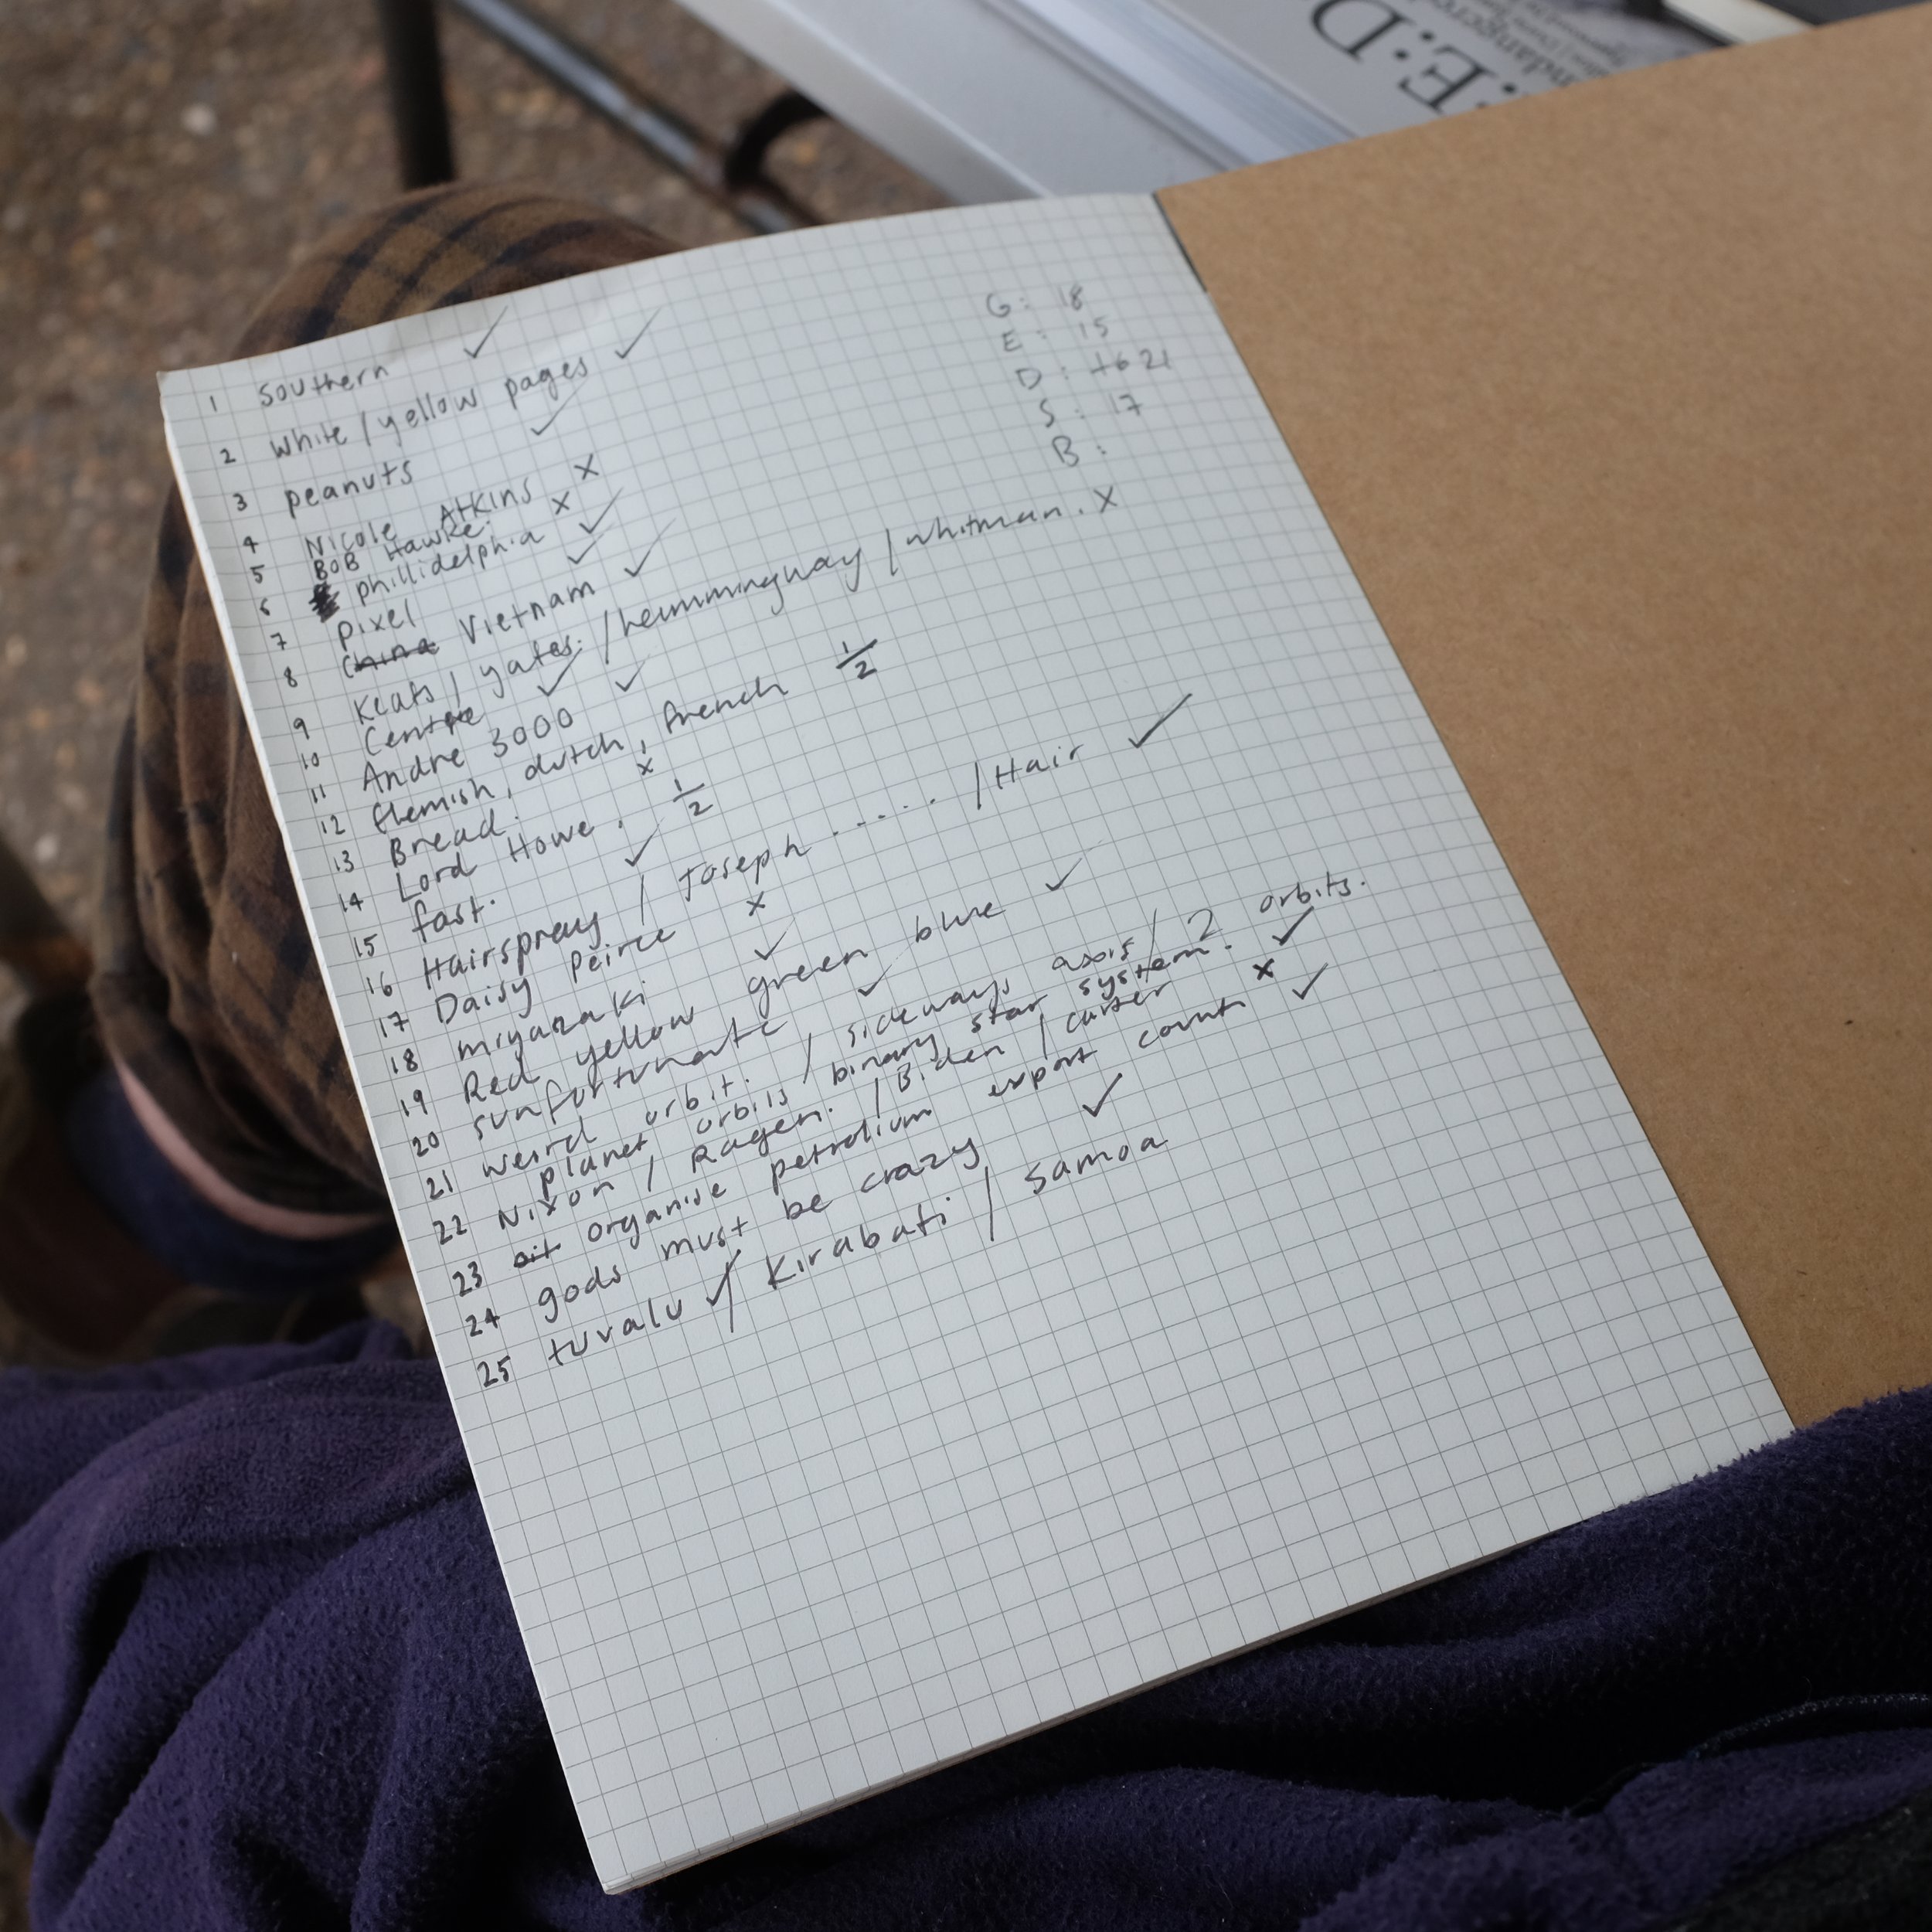 E:D
G: 18
E: 15
D: 16 21
S: 17
B:
1 Southern ✓
2 white / yellow pages ✓
3 peanuts ✓
4 Nicole Atkins X
5 BOB Hawke. X
6 phillidelphia ✓
7 pixel ✓
8 China Vietnam ✓
9 Keats / yates. / hemmingway / whitman. X
10 Centre ✓
11 Andre 3000 ✓
12 flemish, dutch, french 1/2
13 Bread. X
14 Lord Howe. 1/2
15 fast. ✓
16 Hairspray / Joseph ..... / Hair ✓
17 Daisy Peirce X
18 miyazaki ✓
19 Red yellow green blue ✓
20 sunfortunate ✓
21 weird orbit. / sideways axis / 2 orbits.
planet orbits binary star system. ✓
22 Nixon / Ragen. / Biden / carter X
23 oil organise petrolium export count ✓
24 gods must be crazy ✓
25 tuvalu ✓ / Kirabati / Samoa